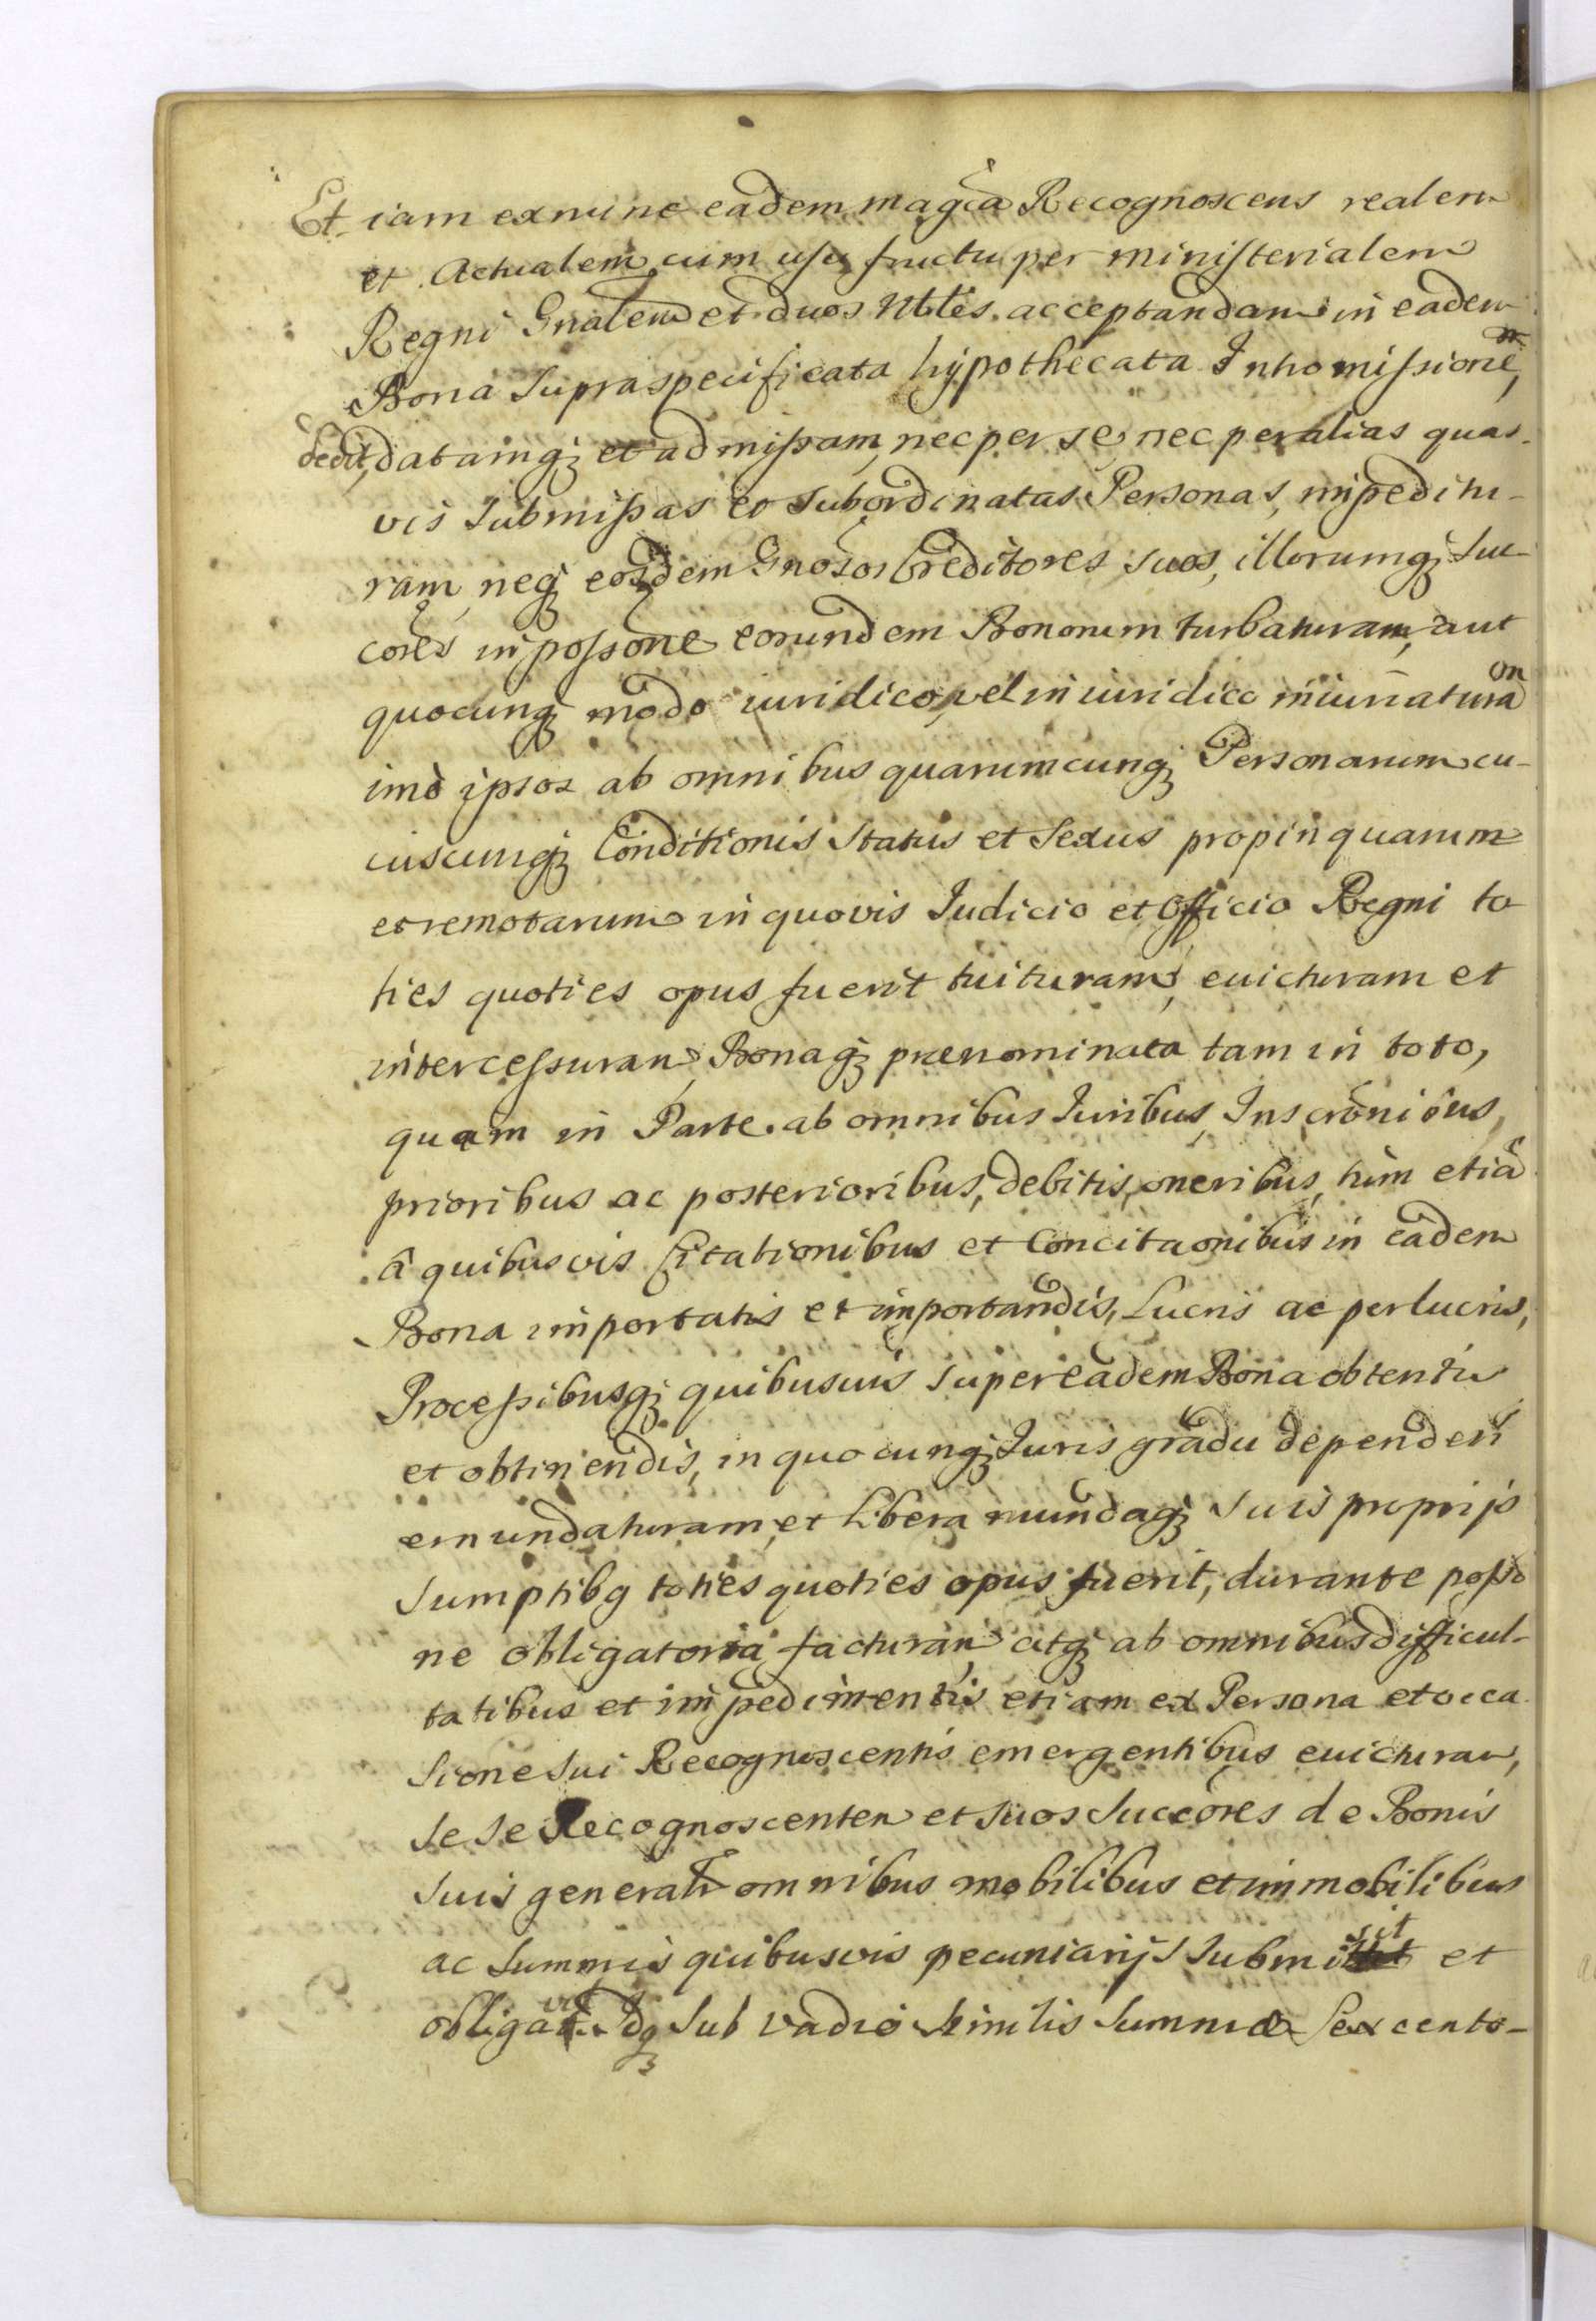 Et iam exnunc eadem magca Recognoscens realem
et Actualem cum usu fructu per ministerialem
Regni Gnalem et duos Nbles acceptandam in eadem
Bona supraspecificata hypothecata Intromissionem,
dedit, datamq; et admissam, nec per se, nec per alias quas-
vis submissas et subordinatas Personas, impeditu-
ram, neq; eosdem Gnosos Creditores suos, illorumq; suc-
cores in possone eorundem Bonorum turbaturam, aut
quocunq; modo iuridico, vel iniuridico iniuriaturam
imò ipsos ab omnibus quarumcunq; Personarum cu-
iuscunq; Conditionis status et sexus propinquarum
et remotarum in quovis Iudicio et Officio Regni to-
ties quoties opus fuerit tuituram, euicturam et
intercessuram, Bonaq; prænominata tam in toto,
quam in Parte ab omnibus Iuribus, Inscronibus,
prioribus ac posterioribus, debitis, oneribus, tum etiã
â quibusvis Citationibus et Concitaonibus in eadem
Bona importatis et importandis, Lucris ac perlucris,
Processibusq; quibusuis super eadem Bona obtentis
et obtinendis, in quocunq; Iuris gradu dependen
emundaturam, et libera mundaq; suis proprijs
sumptibg toties quoties opus fuerit, durante posso
ne obligatoria, facturam, atq; ab omnibus difficul-
tatibus et impedimentis etiam ex Persona et occa
sione sui Recognoscentis emergentibus euicturam,
se se Recognoscentem et suos succores de Bonis
suis generalr omnibus mobilibus et immobilibus
ac summis quibusvis pecuniarijs submisit et
obligavit. Idq; sub vadio similis summæ sexcento-